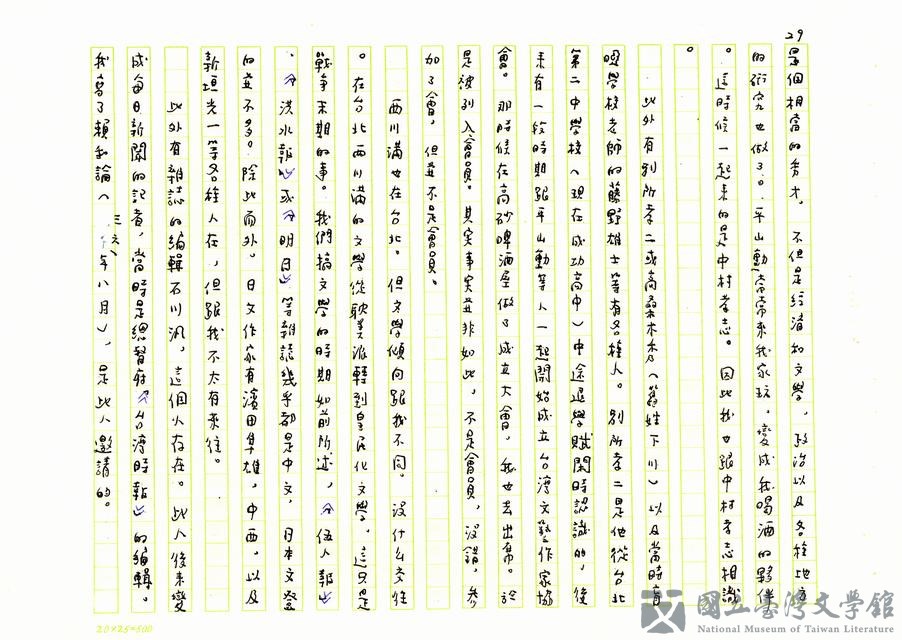 29
是個相當的秀才。不但是經濟和文學，政治以及各種地方
的研究也做了。平山勳常常來我家玩，變成我喝酒的夥伴
。這時候一起來的是中村孝志。因此我也跟中村孝志相識
。
此外有別所孝二或高桑末秀（舊姓下川）以及當時盲
啞學校老師的藤野雄士等有各種人。別所孝二是他從台北
第二中學校（現在成功高中）中途退學賦閑時認識的，後
來有一段時期跟平山勳等人一起開始成立台灣文藝作家協
會。那時候在高砂啤酒屋做了成立大會，我也去出席。於
是被列入會員。其實事實並非如此，不是會員，沒錯，參
加了會，但並不是會員。
西川滿也在台北。但文學傾向跟我不同。沒什么交往
。在台北西川滿的文學從耽美派轉到皇民化文學，這只是
戰爭末期的事。我們搞文學的時期如前所述，《伍人報》
、《洪水報》或《明日》等雜誌幾乎都是中文，日本文登
的並不多。除此而外，日文作家有濱田隼雄，中西，以及
新垣光一等各種人在，但跟我不太有來往。
此外有雜誌的編輯石川汎，這個人存在。此人後來變
成每日新聞的記者，當時是總督府《台灣時報》的編輯。
我寫了賴和論（ 年八月），是此人邀請的。
20×25=500
國立臺灣文學館
National Museum of Taiwan Literature